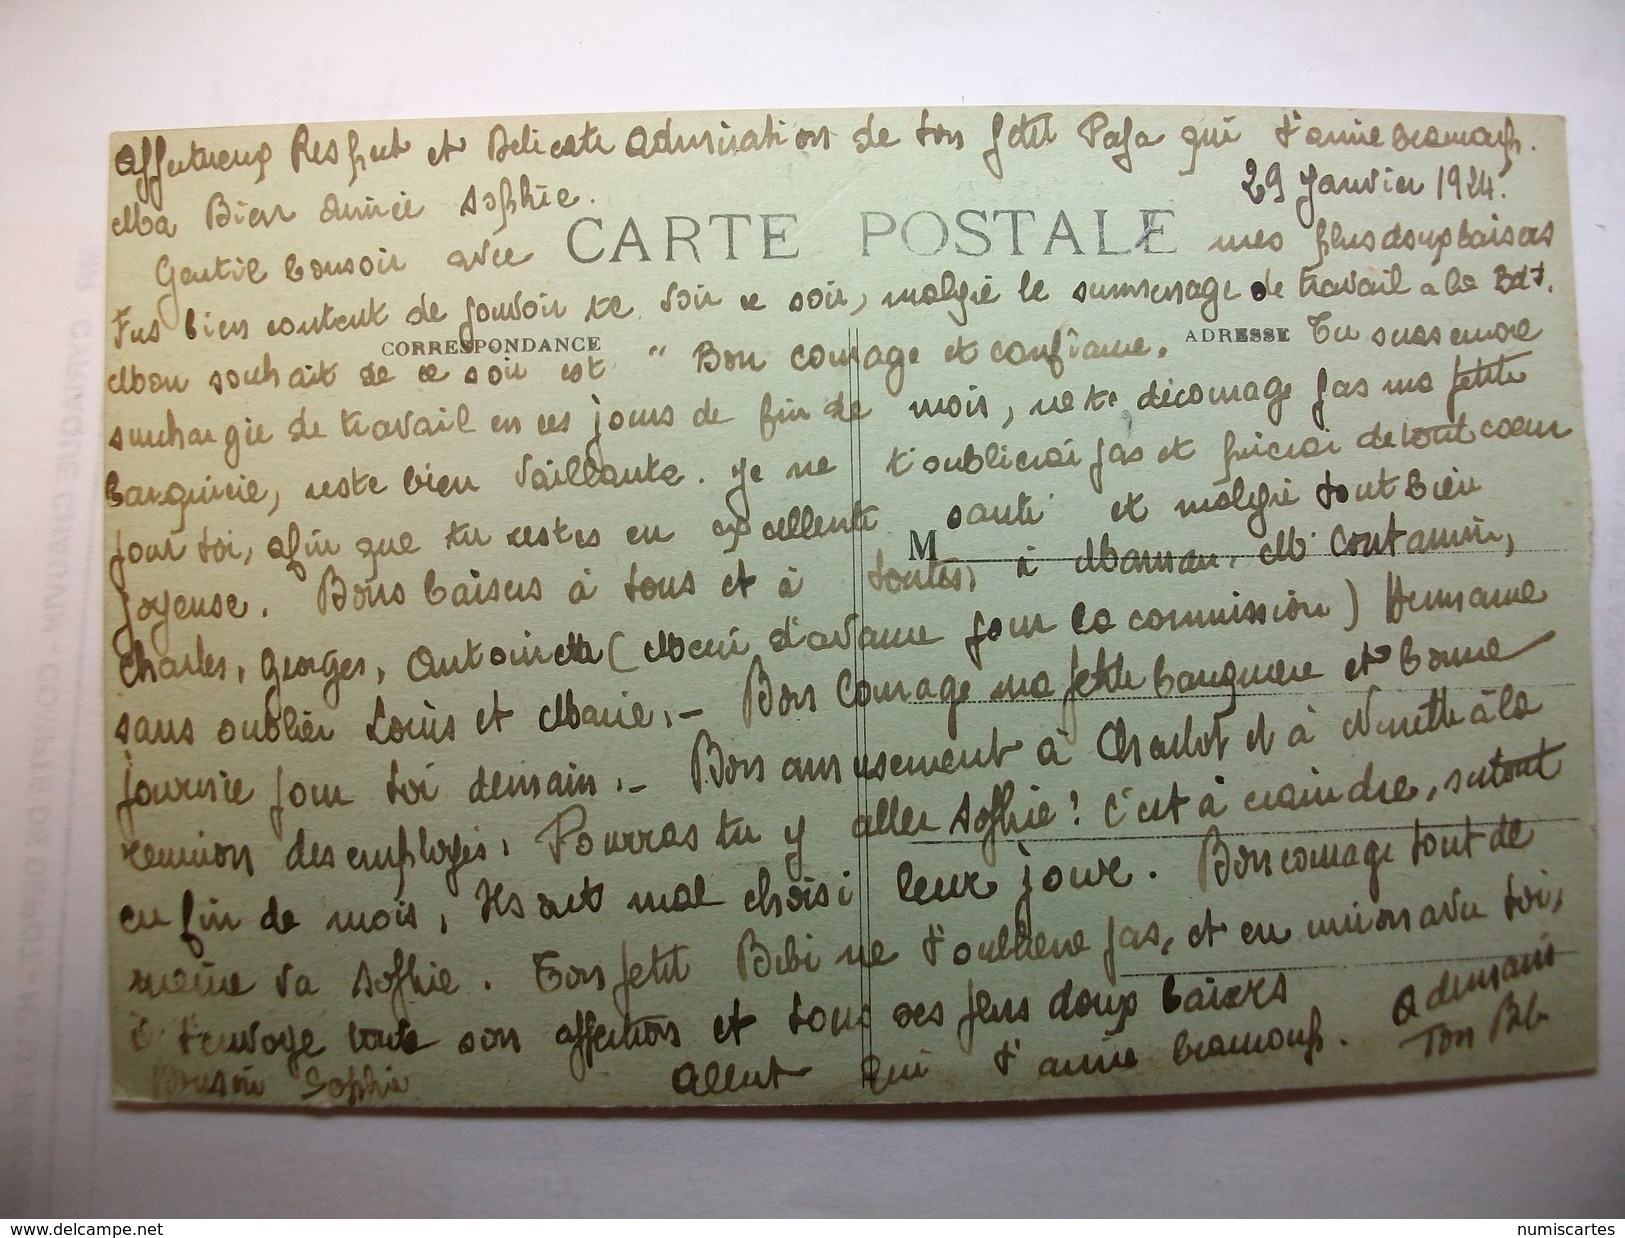 Affectueux Respect et Délicate admiration de ton petit Papa qui t'aime beaucoup.
29 Janvier 1924.
Ma Bien aimée Sophie.
CARTE POSTALE
Gentil bonsoir avec mes plus doux baisers
Fus bien content de pouvoir te voir ce soir, malgré le surmenage de travail a la
CORRESPONDANCE
ADRESSE
Mon souhait de ce soir est " Bon courage et confiance. Tu seras encore
surchargée de travail en ces jours de fin de mois, ne te décourage pas ma petite
banquière, reste bien vaillante. Je ne t'oublierai pas et prierai de tout coeur
pour toi, afin que tu restes en excellente santé et malgré tout bien
M
joyeuse. Bons baisers à tous et à toutes, à Maman, Mr Contamin,
Charles, Georges, Antoinette (Merci d'avance pour la commission) Hermance
sans oublier Louis et Marie. - Bon Courage ma petite banquière et bonne
journée pour toi demain. - Bon amusement à Charlot et à Ninette à la
reunion des employés. Pourras tu y aller Sophie! C'est à craindre, surtout
en fin de mois, Ils ont mal choisi leur jour. Bon courage tout de
même va Sophie. Ton petit Bibi ne t'oubliera pas, et en union avec toi,
t'envoye toute son affection et tous ses plus doux baisers
Bonsoir Sophie qui t'aime beaucoup. A demain
Ton Bibi
numiscartes
http://www.delcampe.net